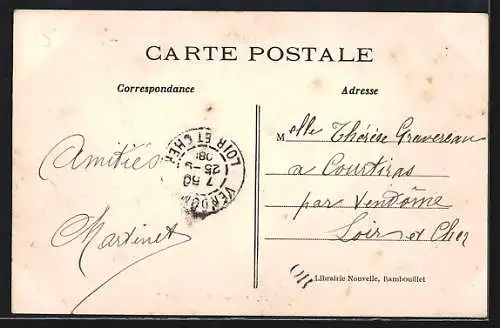 CARTE POSTALE
Correspondance
Adresse
Amitiés
Martinet
Melle Thérèse Gravereau
a Courtiras
par Vendôme
Loir et Cher
VENDOME
7 50
25 -9
08
LOIR ET CHER
Librairie Nouvelle, Rambouillet